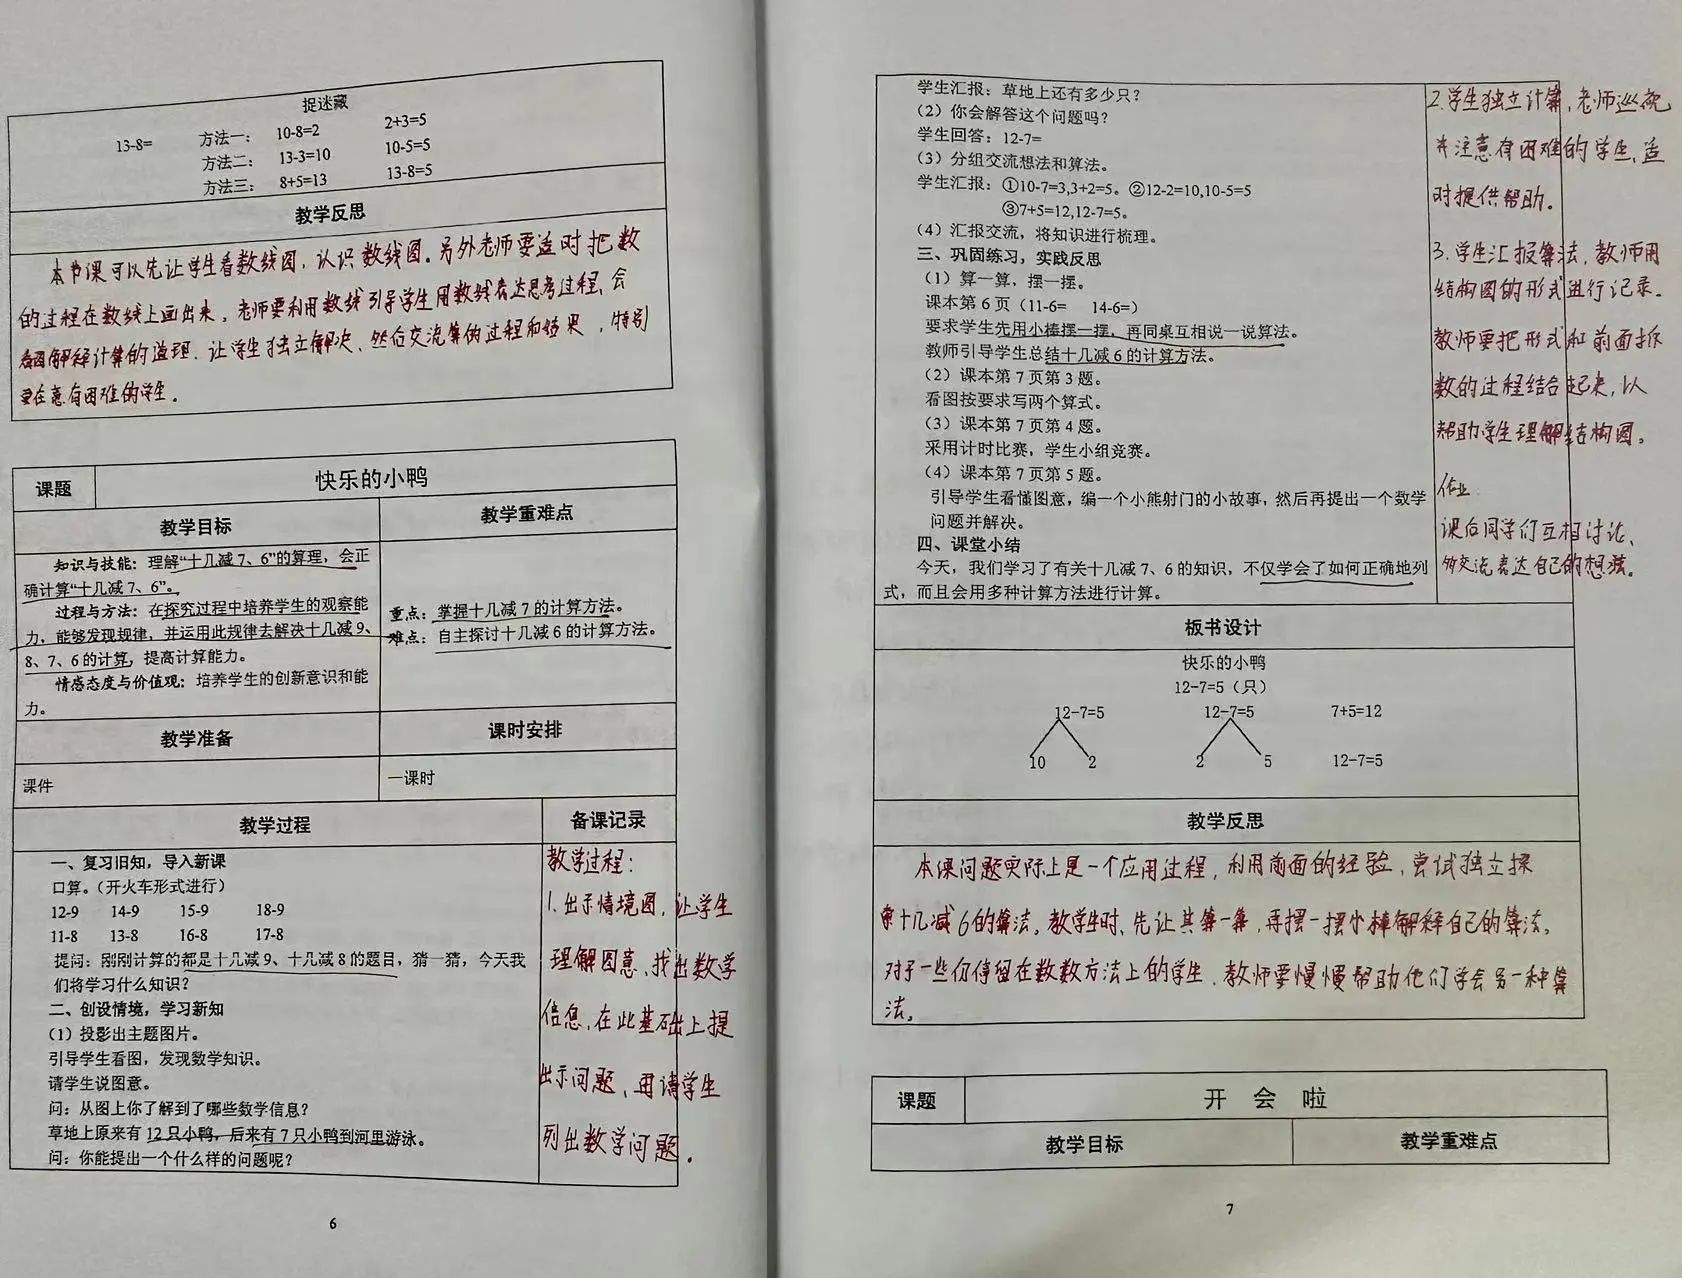 捉迷藏
13-8= 方法一： 10-8=2 2+3=5
方法二： 13-3=10 10-5=5
方法三： 8+5=13 13-8=5
教学反思
本节课可以先让学生看数线图，认识数线图。另外老师要适时把数
的过程在数线上画出来，老师要利用数线引导学生用数线表达思考过程、会
解释计算的道理。让学生独立解决、然后交流算的过程和结果，特别
要在意有困难的学生。
课题 快乐的小鸭
教学目标 教学重难点
知识与技能：理解“十几减7、6”的算理，会正
确计算“十几减7、6”。
过程与方法：在探究过程中培养学生的观察能
力，能够发现规律，并运用此规律去解决十几减9、
8、7、6的计算，提高计算能力。
情感态度与价值观：培养学生的创新意识和能
力。
重点：掌握十几减7的计算方法。
难点：自主探讨十几减6的计算方法。
教学准备 课时安排
课件 一课时
教学过程 备课记录
一、复习旧知，导入新课
口算。（开火车形式进行）
12-9 14-9 15-9 18-9
11-8 13-8 16-8 17-8
提问：刚刚计算的都是十几减9、十几减8的题目，猜一猜，今天我
们将学习什么知识？
二、创设情境，学习新知
（1）投影出主题图片。
引导学生看图，发现数学知识。
请学生说图意。
问：从图上你了解到了哪些数学信息？
草地上原来有12只小鸭，后来有7只小鸭到河里游泳。
问：你能提出一个什么样的问题呢？
教学过程：
1.出示情境图，让学生
理解图意、找出数学
信息，在此基础上提
出示问题、再请学生
列出数学问题．
6
学生汇报：草地上还有多少只？
（2）你会解答这个问题吗？
学生回答：12-7=
（3）分组交流想法和算法。
学生汇报：①10-7=3,3+2=5。②12-2=10,10-5=5
③7+5=12,12-7=5。
（4）汇报交流，将知识进行梳理。
三、巩固练习，实践反思
（1）算一算，摆一摆。
课本第6页（11-6= 14-6=）
要求学生先用小棒摆一摆，再同桌互相说一说算法。
教师引导学生总结十几减6的计算方法。
（2）课本第7页第3题。
看图按要求写两个算式。
（3）课本第7页第4题。
采用计时比赛，学生小组竞赛。
（4）课本第7页第5题。
引导学生看懂图意，编一个小熊射门的小故事，然后再提出一个数学
问题并解决。
四、课堂小结
今天，我们学习了有关十几减7、6的知识，不仅学会了如何正确地列
式，而且会用多种计算方法进行计算。
2.学生独立计算，老师巡视
并注意有困难的学生，适
时提供帮助。
3.学生汇报算法，教师用
结构图的形式进行记录。
教师要把形式和前面拆
数的过程结合起来，以
帮助学生理解结构图。
作业
课后同学们互相讨论、
交流表达自己的想法。
板书设计
快乐的小鸭
12-7=5（只）
12-7=5 12-7=5 7+5=12
10 2 2 5 12-7=5
教学反思
本课问题实际上是一个应用过程，利用前面的经验，尝试独立探
索十几减6的算法。教学生时、先让其算一算，再摆一摆小棒解释自己的算法。
对于一些仍停留在数数方法上的学生，教师要慢慢帮助他们学会另一种算
法。
课题 开会啦
教学目标 教学重难点
7